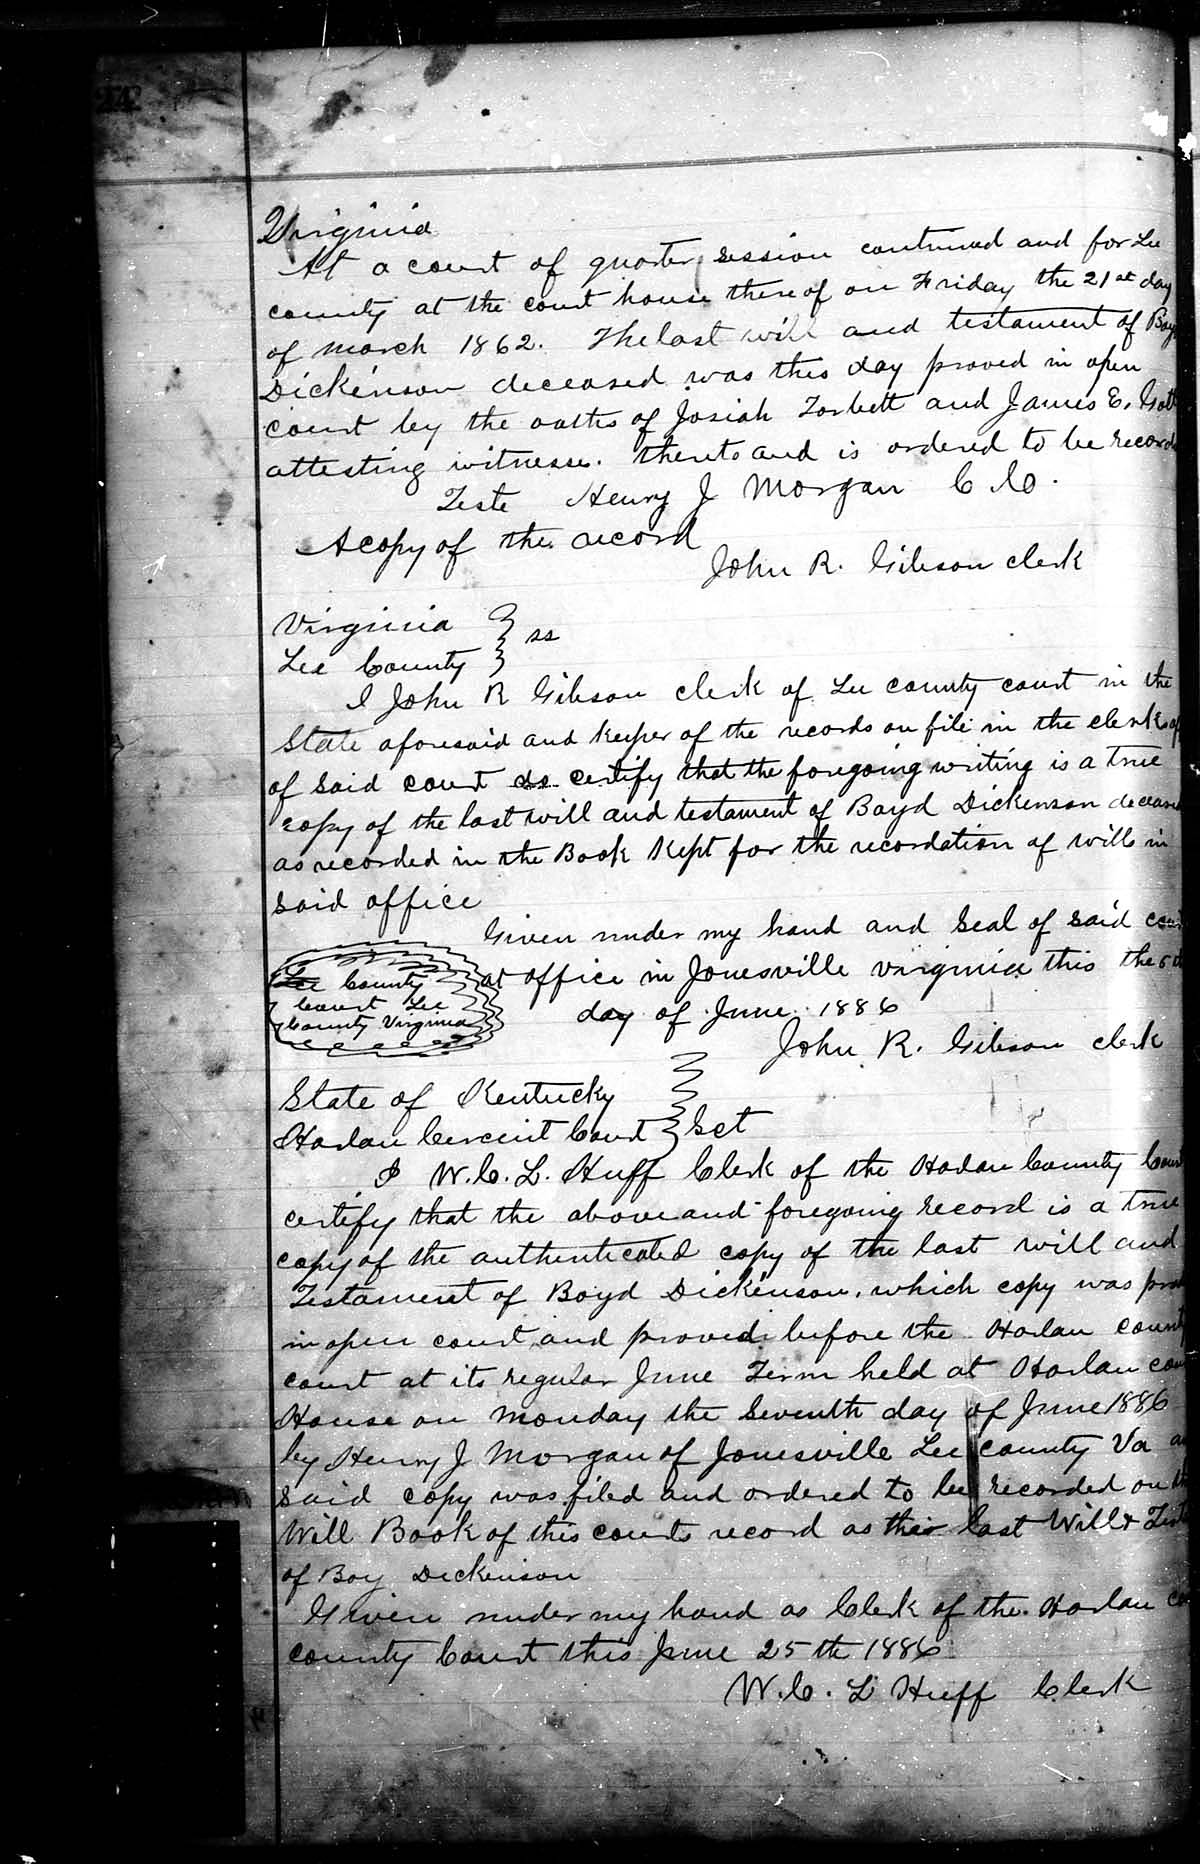 Virginia
At a court of quarter session continued and for Lee
county at the court house thereof on Friday the 21st day
of march 1862. The last will and testament of Boy
Dickenson deceased was this day proved in open
court by the oaths of Josiah Torbett and James E.
attesting witnesses. thereto and is ordered to be record
Teste Henry J Morgan C. C.
A copy of the record
John R. Gibson clerk
Virginia } ss
Lee County
I John R Gibson clerk of Lee county court in the
State aforesaid and Keeper of the records on file in the clerks of
of said court do certify that the foregoing writing is a true
copy of the last will and testament of Boyd Dickenson deceas
as recorded in the Book Kept for the recordation of wills in
said office
Given under my hand and Seal of said cou
at office in Jonesville virginia this the
day of June 1886
Lee County
Court Lee
County Virginia
John R. Gibson clerk
State of Kentucky
Harlan Cercuit Court } Sct
I W. C. L. Huff Clerk of the Harlan County Cou
certify that the above and foregoing record is a true
copy of the authenticated copy of the last will and
Testament of Boyd Dickenson, which copy was pro
in open court, and proved before the Harlan count
court at its regular June Term held at Harlan cou
House on Monday the Seventh day of June 1886
by Henry J Morgan of Jonesville Lee county Va a
said copy was filed and ordered to be recorded on
Will Book of this courts record as their last Will & Test
of Boy Dickinson
Given under my hand as Clerk of the Harlan co
county Court this June 25th 1886
W. C. L Huff Clerk